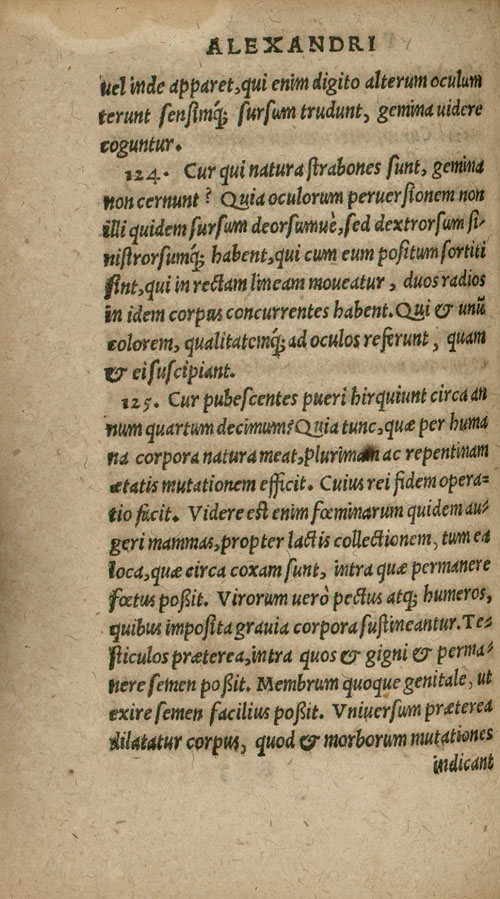 ALEXANDRI
uel inde apparet, qui enim digito alterum oculum
terunt sensimq́; sursum trudunt, gemina uidere
coguntur.
124. Cur qui natura strabones sunt, gemina
non cernunt? Quia oculorum peruersionem non
illi quidem sursum deorsumuè, sed dextrorsum si-
nistrorsumq́; habent, qui cum eum positum sortiti
sint, qui in rectam lineam moueatur, duos radios
in idem corpus concurrentes habent. Qui & unũ
colorem, qualitatemq́; ad oculos referunt, quam
& ei suscipiant.
125. Cur pubescentes pueri hirquiunt circa an
num quartum decimum? Quia tunc, quæ per huma
na corpora natura meat, plurimam ac repentinam
ætatis mutationem efficit. Cuius rei fidem opera-
tio facit. Videre est enim fœminarum quidem au-
geri mammas, propter lactis collectionem, tum ea
loca, quæ circa coxam sunt, intra quæ permanere
fœtus poßit. Virorum uerò pectus atq; humeros,
quibus imposita grauia corpora sustineantur. Te-
sticulos præterea, intra quos & gigni & perma-
nere semen poßit. Membrum quoque genitale, ut
exire semen facilius poßit. Vniuersum præterea
dilatatur corpus, quod & morborum mutationes
indicant